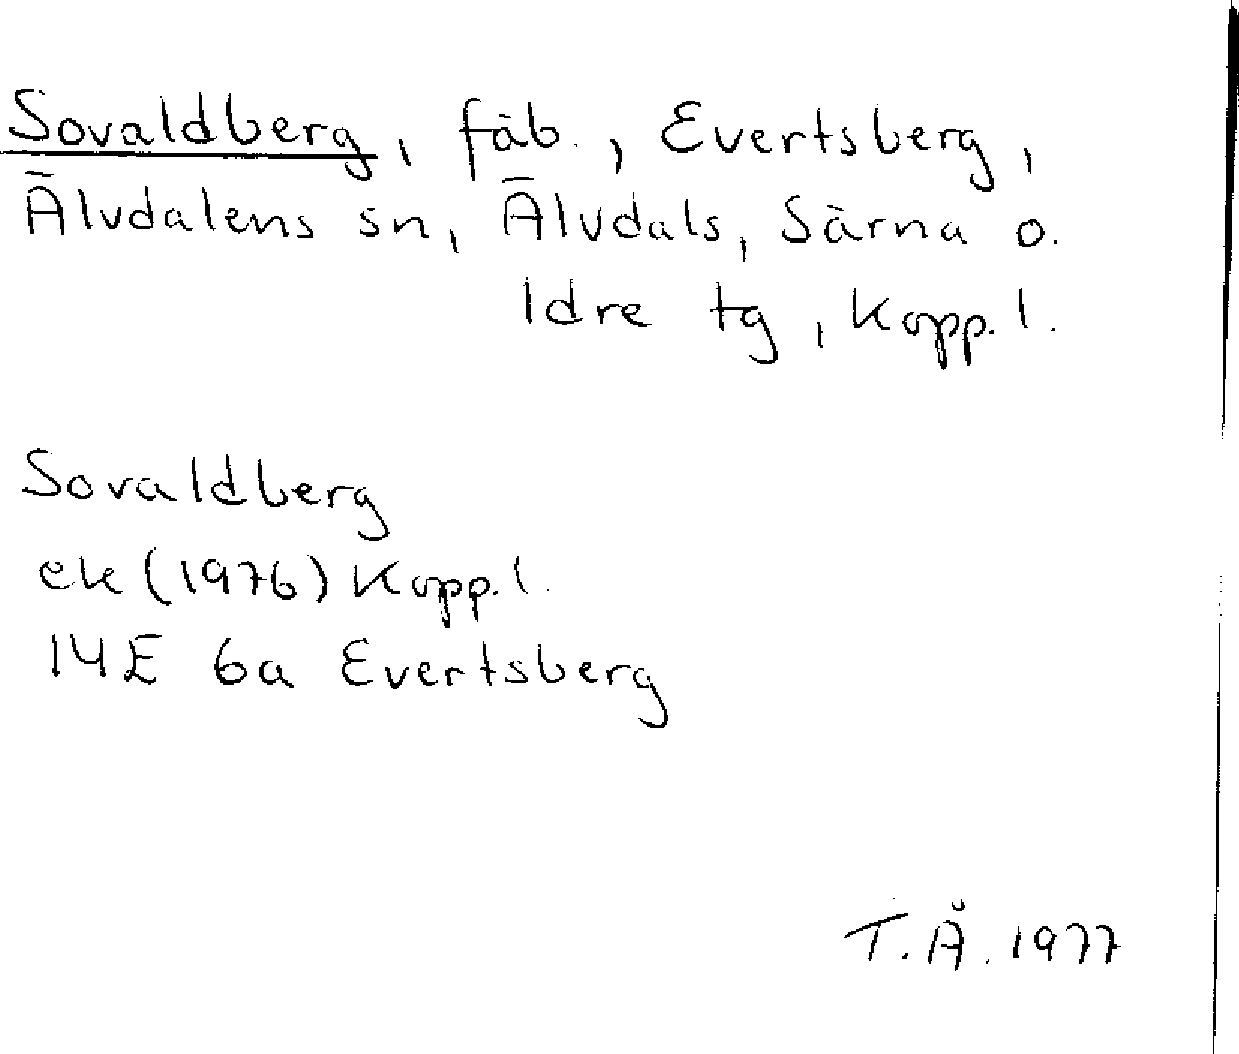 Sovaldberg, fäb., Evertsberg,
Älvdalens sn, Älvdals, Särna o.
Idre tg, Kopp. l.
Sovaldberg
ek (1976) Kopp. l.
14E 6a Evertsberg
T. Å. 1977